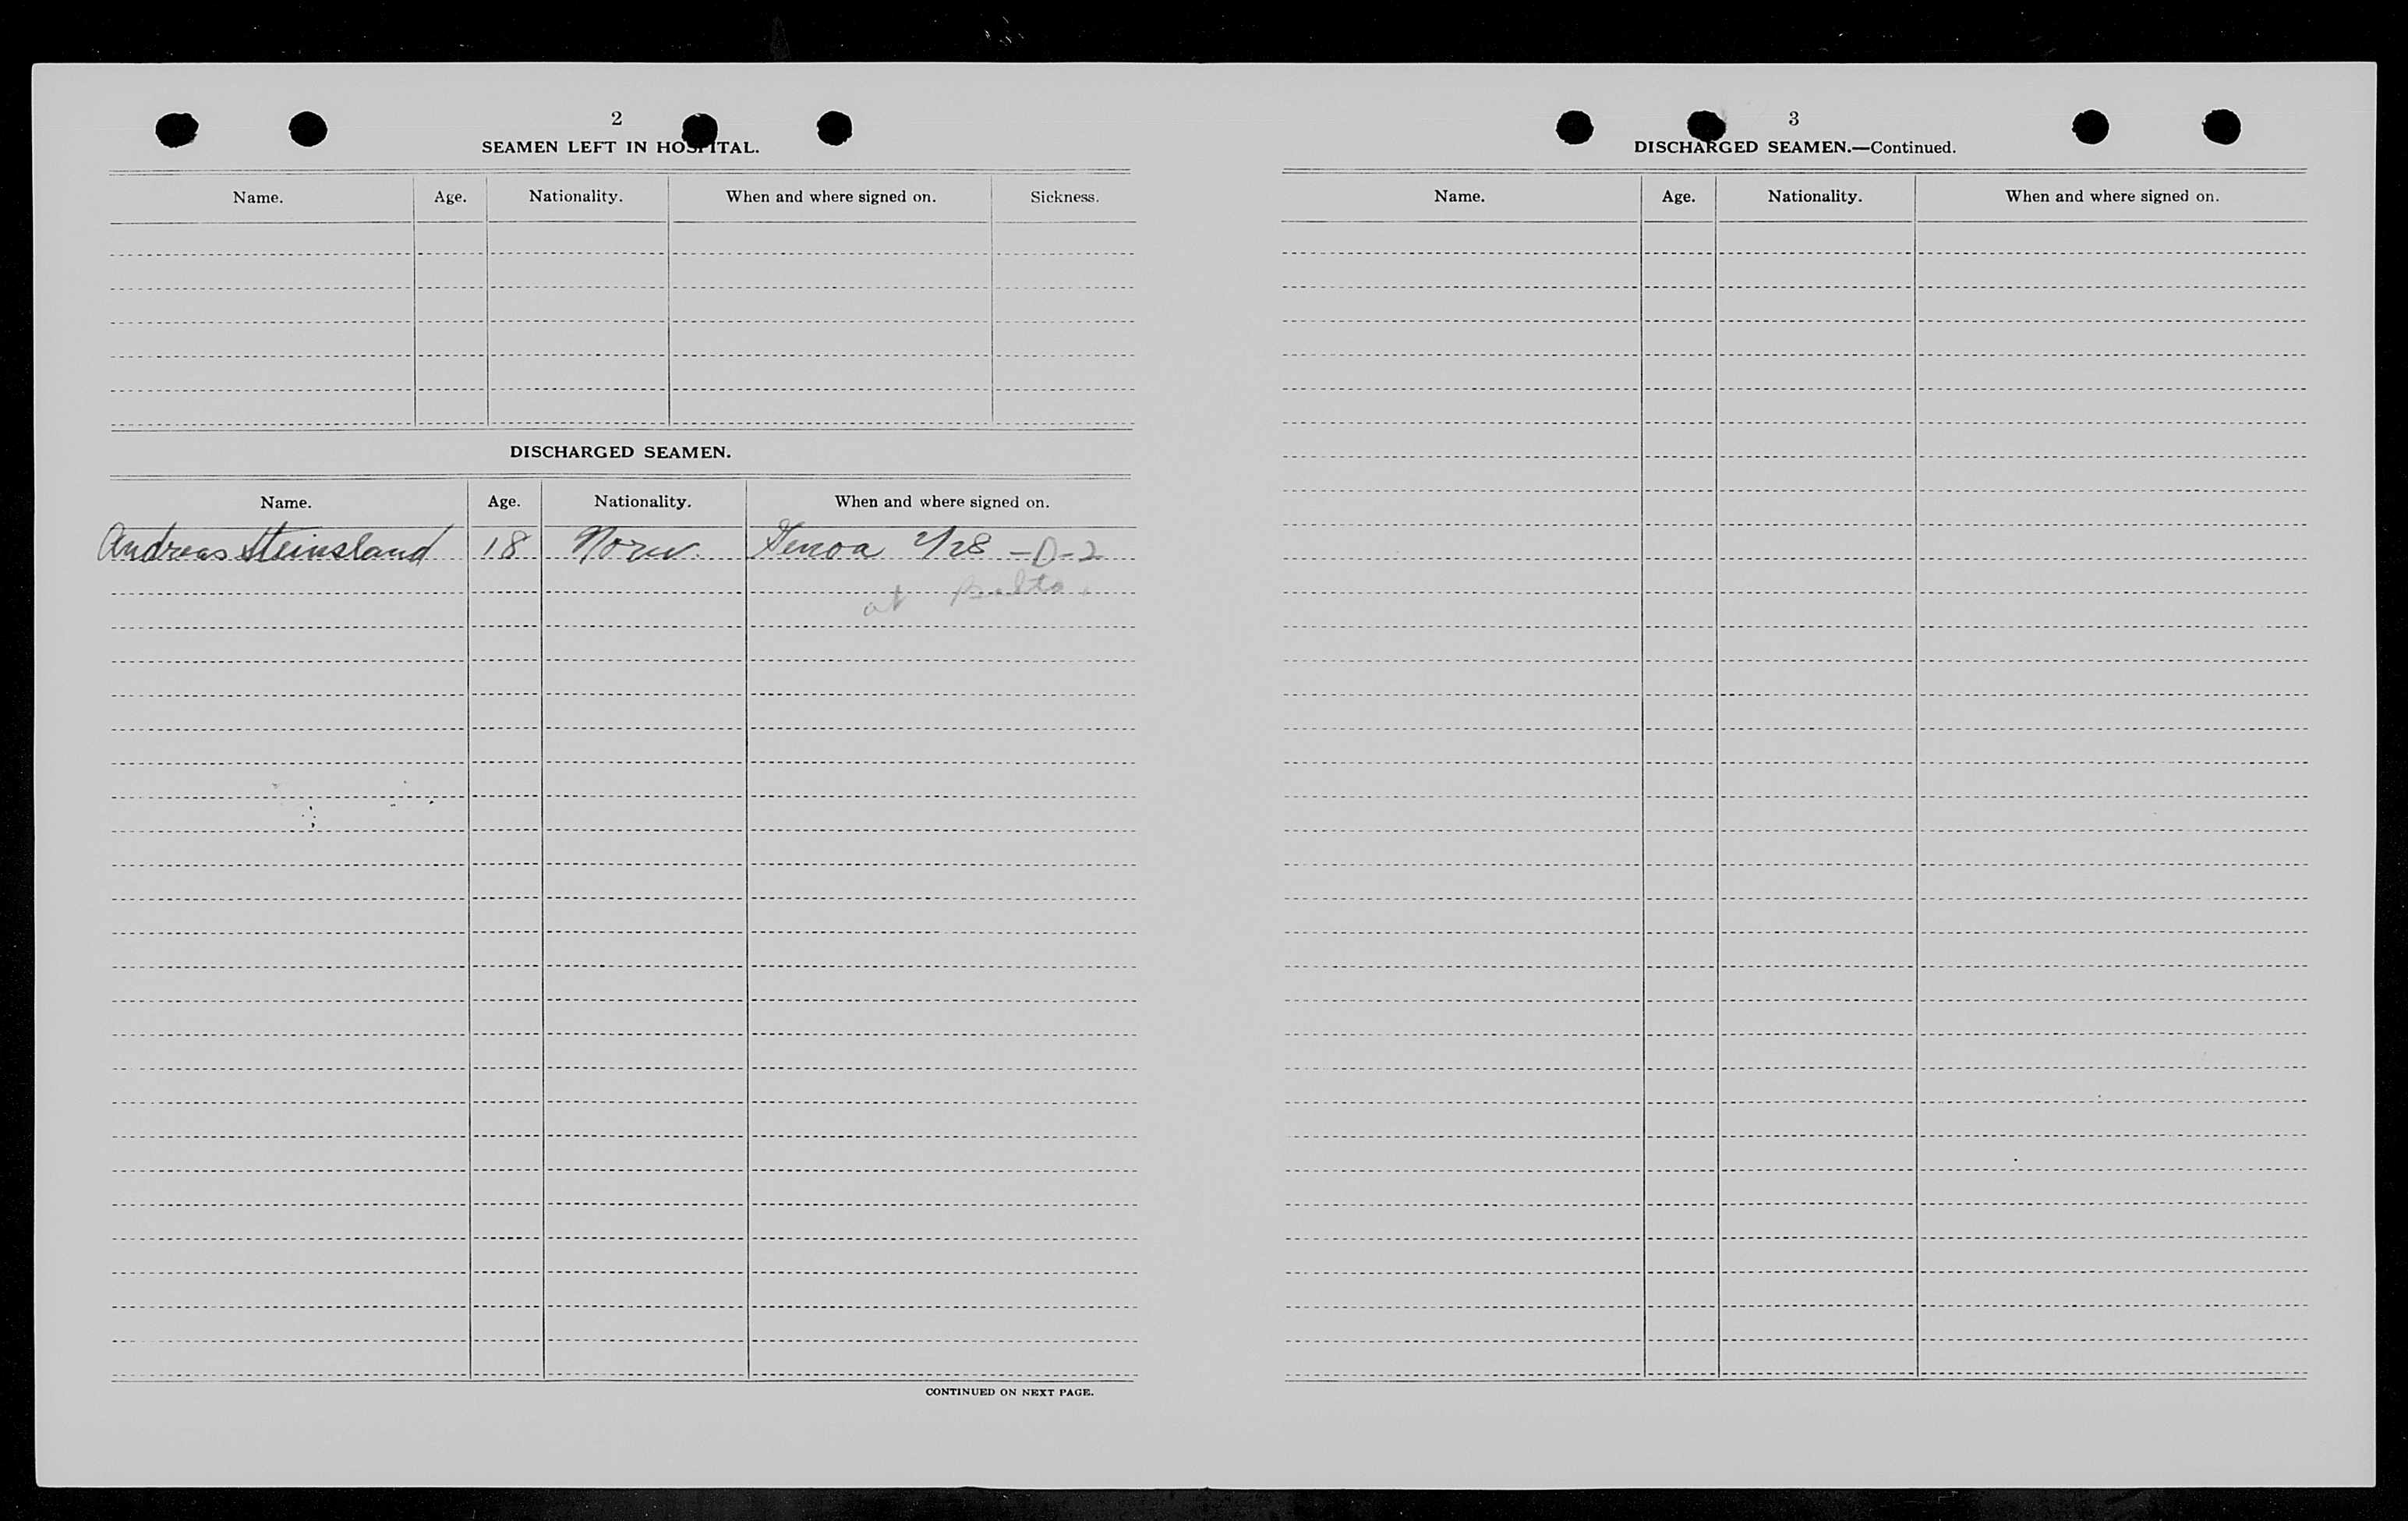 2
SEAMEN LEFT IN HOSPITAL.
Name. Age. Nationality. When and where signed on. Sickness.
DISCHARGED SEAMEN.
Name. Age. Nationality. When and where signed on.
Andreas Steinsland 18 Norw Genoa 2/28 - D-2
at Balto.
CONTINUED ON NEXT PAGE.
3
DISCHARGED SEAMEN.—Continued.
Name. Age. Nationality. When and where signed on.